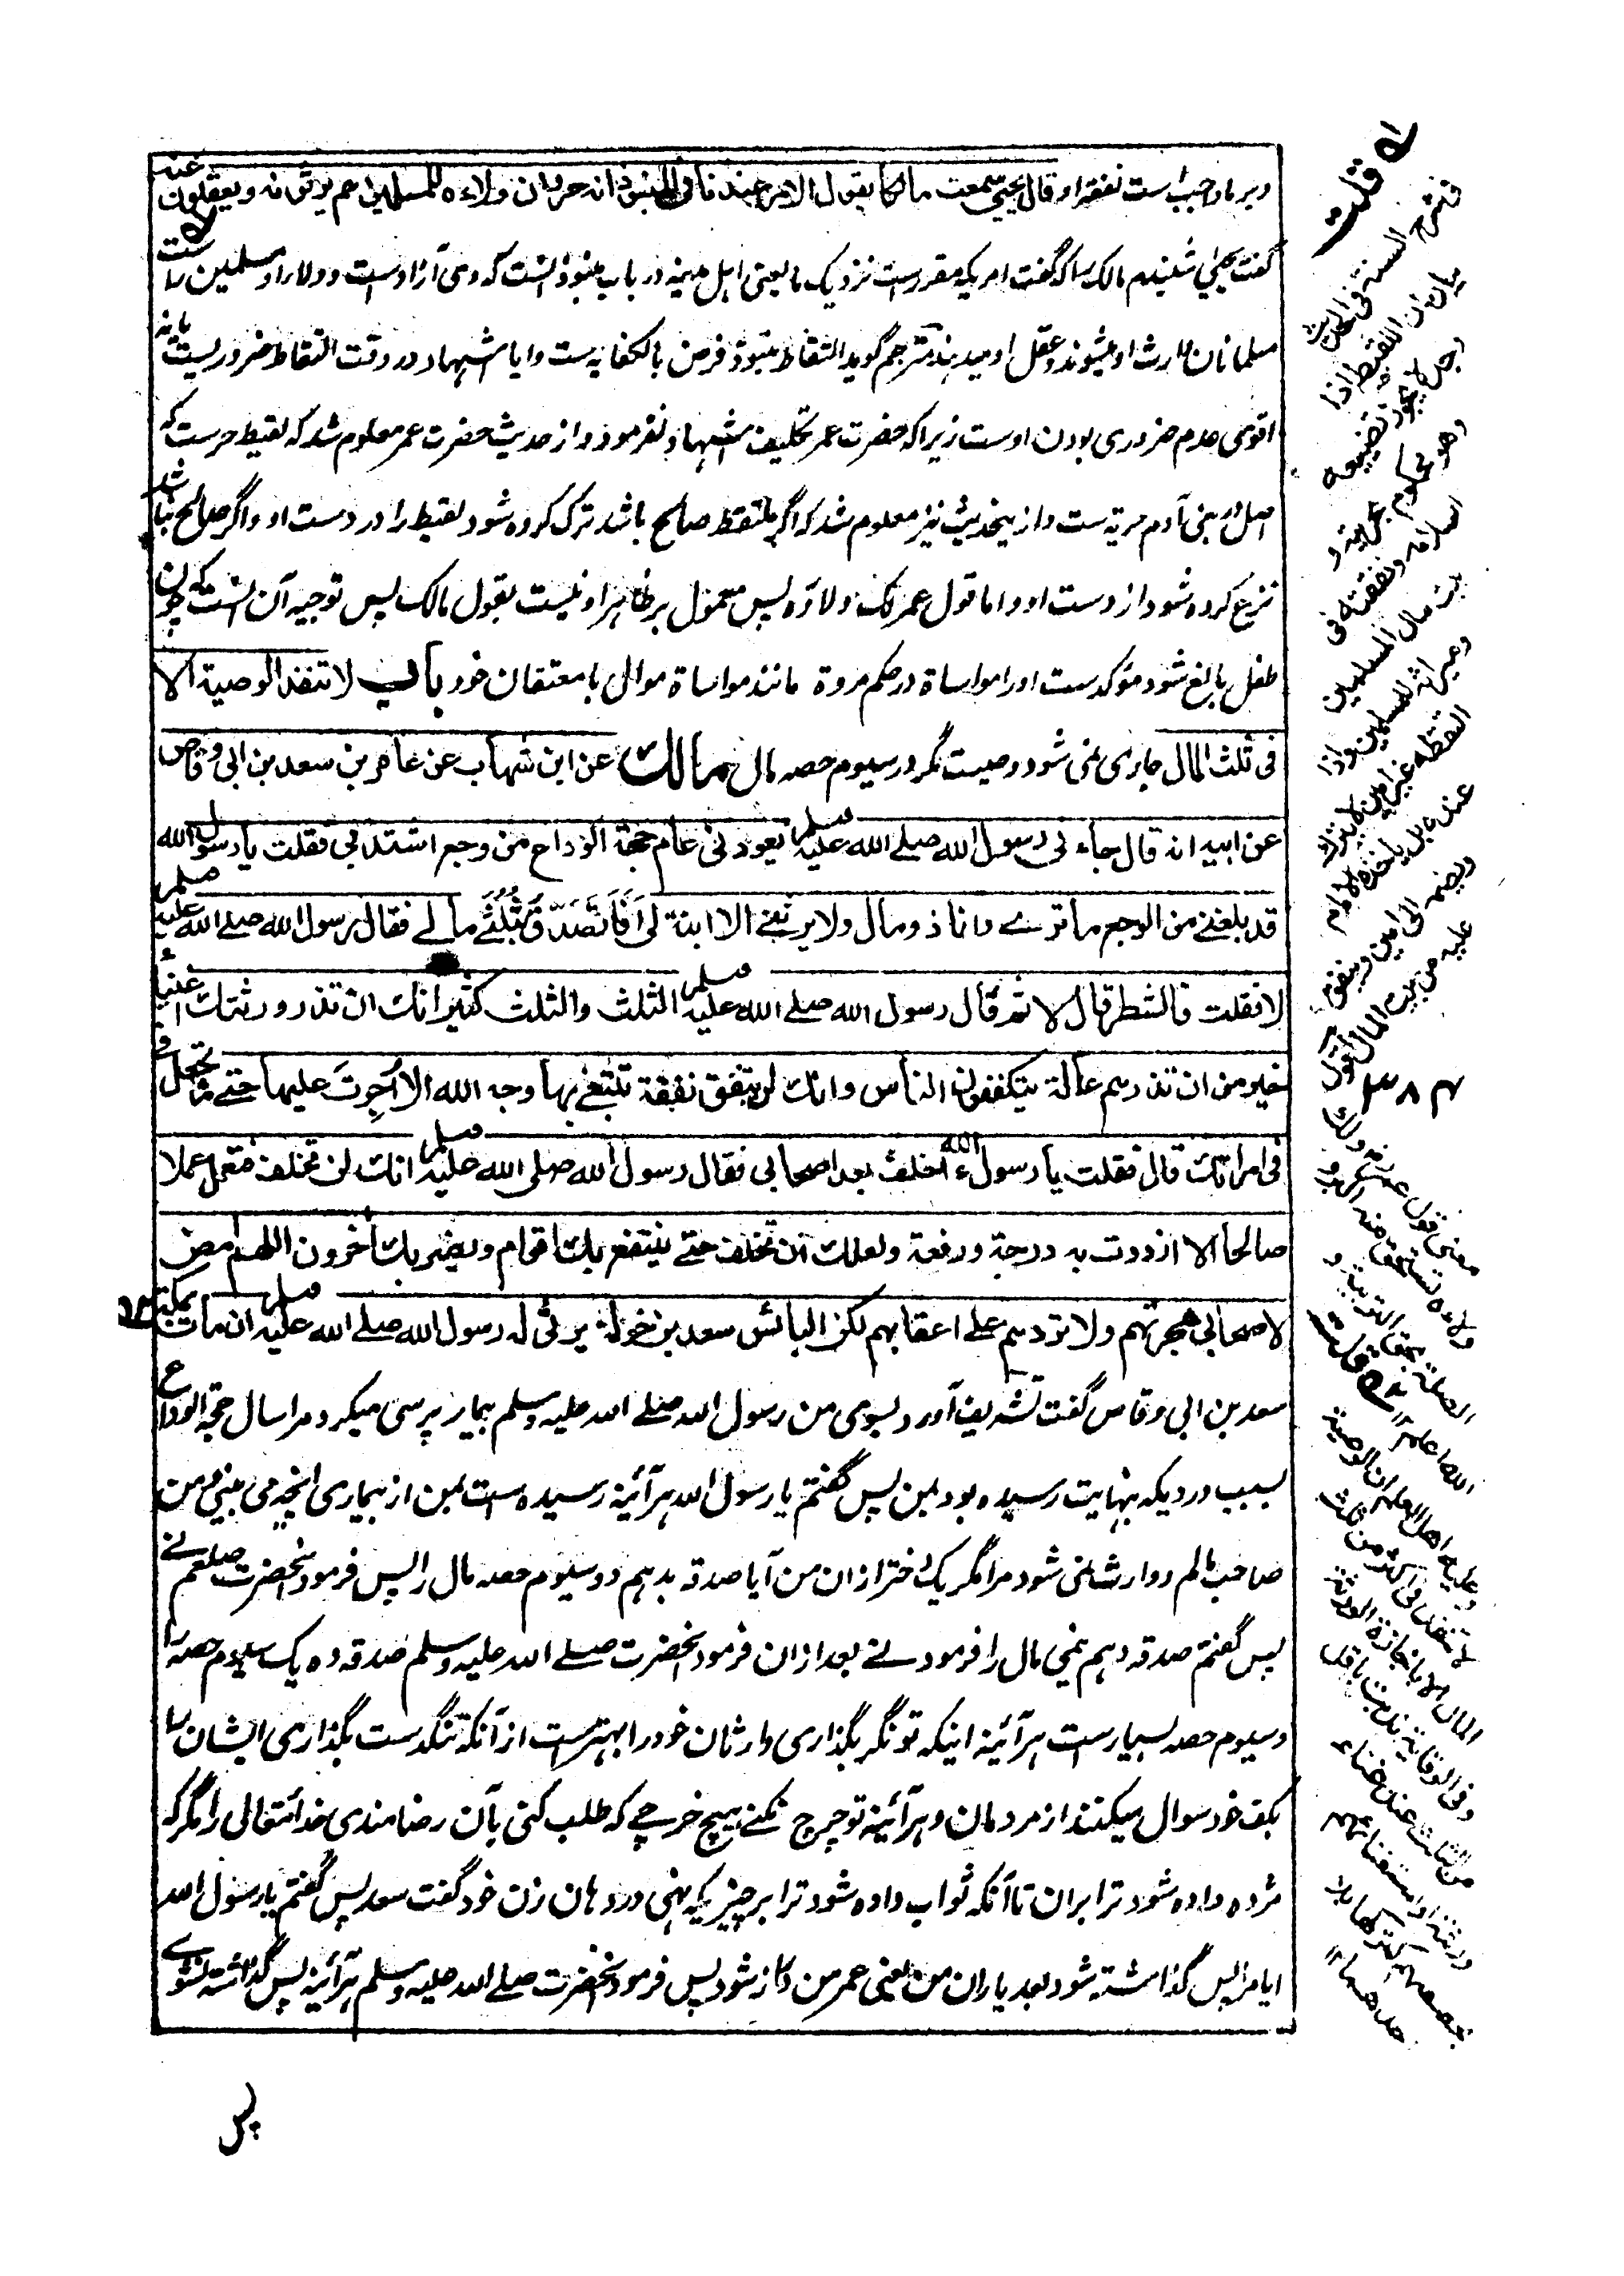 و بر ما واجب است نفقه او قال یحیی سمعت مالکا یقول الامر عندنا فی المنبوذ انه حر وان ولاءه للمسلمین هم یرثونه ویعقلون عنه
گفت یحیی شنیدم مالک را که گفت امریکه مقررست نزدیک ما یعنی اهل مدینه در باب منبوذ انست که وی آزادست و ولا او مسلمین راست
مسلمانان وارث او میشوند و عقل او میدهند مترجم گوید التقاط منبوذ فرض بالکفایه ست وایا اشهاد در وقت التقاط ضروریست یا نه
اقوی عدم ضروری بودن اوست زیرا که حضرت عمر تکلیف اشهاد نفرمود و از حدیث حضرت عمر معلوم شد که لقیط حرست که
اصل در بنی آدم حریة ست و ازینحدیث نیز معلوم شد که اگر ملتقط صالح باشد ترک کرده شود لقیط را در دست او و اگر صالح نباشد
نزع کرده شود از دست او و اما قول عمر لک ولاؤه پس معمول بر ظاهر او نیست بقول مالک پس توجیه آن انست که چون
طفل بالغ شود مؤکدست اورا مواساة در حکم مروة مانند مواساة موالی با معتقان خود باب لا تنفذ الوصیة الا
فی ثلث المال جاری نمی شود وصیت مگر در سیوم حصه مال مالک عن ابن شهاب عن عامر بن سعد بن ابی وقاص
عن ابیه انه قال جاءنی رسول الله صلے الله علیه وسلم یعودنی عام حجة الوداع من وجع اشتد بی فقلت یا رسول الله
قد بلغنے من الوجع ما ترے وانا ذو مال ولا یرثنے الا ابنة لی أفأتصدق بثلثے مالے فقال رسول الله صلے الله علیه وسلم
لا فقلت فالشطر قال لا ثم قال رسول الله صلے الله علیه وسلم الثلث والثلث کثیر انک ان تذر ورثتک اغنیاء
خیر من ان تذرهم عالة یتکففون الناس وانک لن تنفق نفقة تبتغے بها وجه الله الا أجرت علیها حتے ما تجعل فی
فی امراتک قال فقلت یا رسول الله ءاخلف بعد اصحابی فقال رسول الله صلی الله علیه وسلم انک لن تخلف فتعمل عملا
صالحا الا ازددت به درجة ورفعة ولعلک ان تخلف حتے ینتفع بک اقوام ویضر بک آخرون اللهم امض
لاصحابی هجرتهم ولا تردهم علے اعقابهم لکن البائس سعد بن خولة یرثی له رسول الله صلے الله علیه وسلم ان مات بمکة
سعد بن ابی وقاص گفت تشریف آورد بسوی من رسول الله صلے الله علیه وسلم بیمار پرسی میکرد مرا سال حجة الوداع
بسبب دردیکه بنهایت رسیده بود بمن پس گفتم یا رسول الله هر آئینه رسیده است بمن از بیماری انچه می بینی و من
صاحب مالم و وارث نمی شود مرا مگر یک دختر از ان من آیا صدقه بدهم دو سیوم حصه مال را پس فرمود آنحضرت صلعم نے
پس گفتم صدقه دهم نیمی مال را فرمود نے بعد از ان فرمود آنحضرت صلے الله علیه وسلم صدقه ده یک سیوم حصه را
و سیوم حصه بسیارست هر آئینه اینکه تونگر بگذاری وارثان خود را بهترست از آنکه تنگدست بگذاری ایشان را
بکف خود سوال میکنند از مردمان و هر آئینه تو خرچ نکنے هیچ خرچے که طلب کنی بآن رضامندی خدایتعالی را مگر که
مژده داده شود ترا بران تا آنکه ثواب داده شود ترا بر چیزیکه بنهی در دهان زن خود گفت سعد پس گفتم یا رسول الله
ایا مرا پس گذاشته شود بعد یاران من یعنی عمر من دراز شود پس فرمود آنحضرت صلے الله علیه وسلم هر آئینه پس گذاشته نشوے
پس
له قلت
فی شرح السنة فی الحدیث
بیان ان اللقیط اذا
وجد لا یجوز تضییعه
وهو محکوم بحریته و
اسلامه ونفقته فی
بیت مال المسلمین
ومیراثه للمسلمین واذا
التقطه غیر امین لا یترک
عنده بل یاخذه الامام
ویضمه الی امین وینفق
علیه من بیت المال اقول
معنی قول عمر
ولاءه تستحق منه البر و
الصلة بحق التربیة و
الله اعلم ۱۲
۲ه قلت
وعلیه اهل العلم ان الوصیة
لا تنفذ فی اکثر من ثلث
المال الا باجازة الورثة
وفی الوقایة ندبت باقل
من الثلث عند غناء
ورثته او استغنائهم
بحصصهم کترکها بلا
احدهما ۱۲